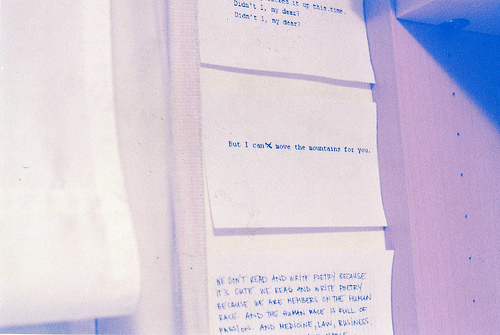 it up this time.
Didn't I, my dear?
Didn't I, my dear?
But I can move the mountains for you.
WE DON'T READ AND WRITE POETRY BECAUSE
IT'S CUTE. WE READ AND WRITE POETRY
BECAUSE WE ARE MEMBERS OF THE HUMAN
RACE. AND THE HUMAN RACE IS FULL OF
PASSION. AND MEDICINE, LAW, BUSINESS